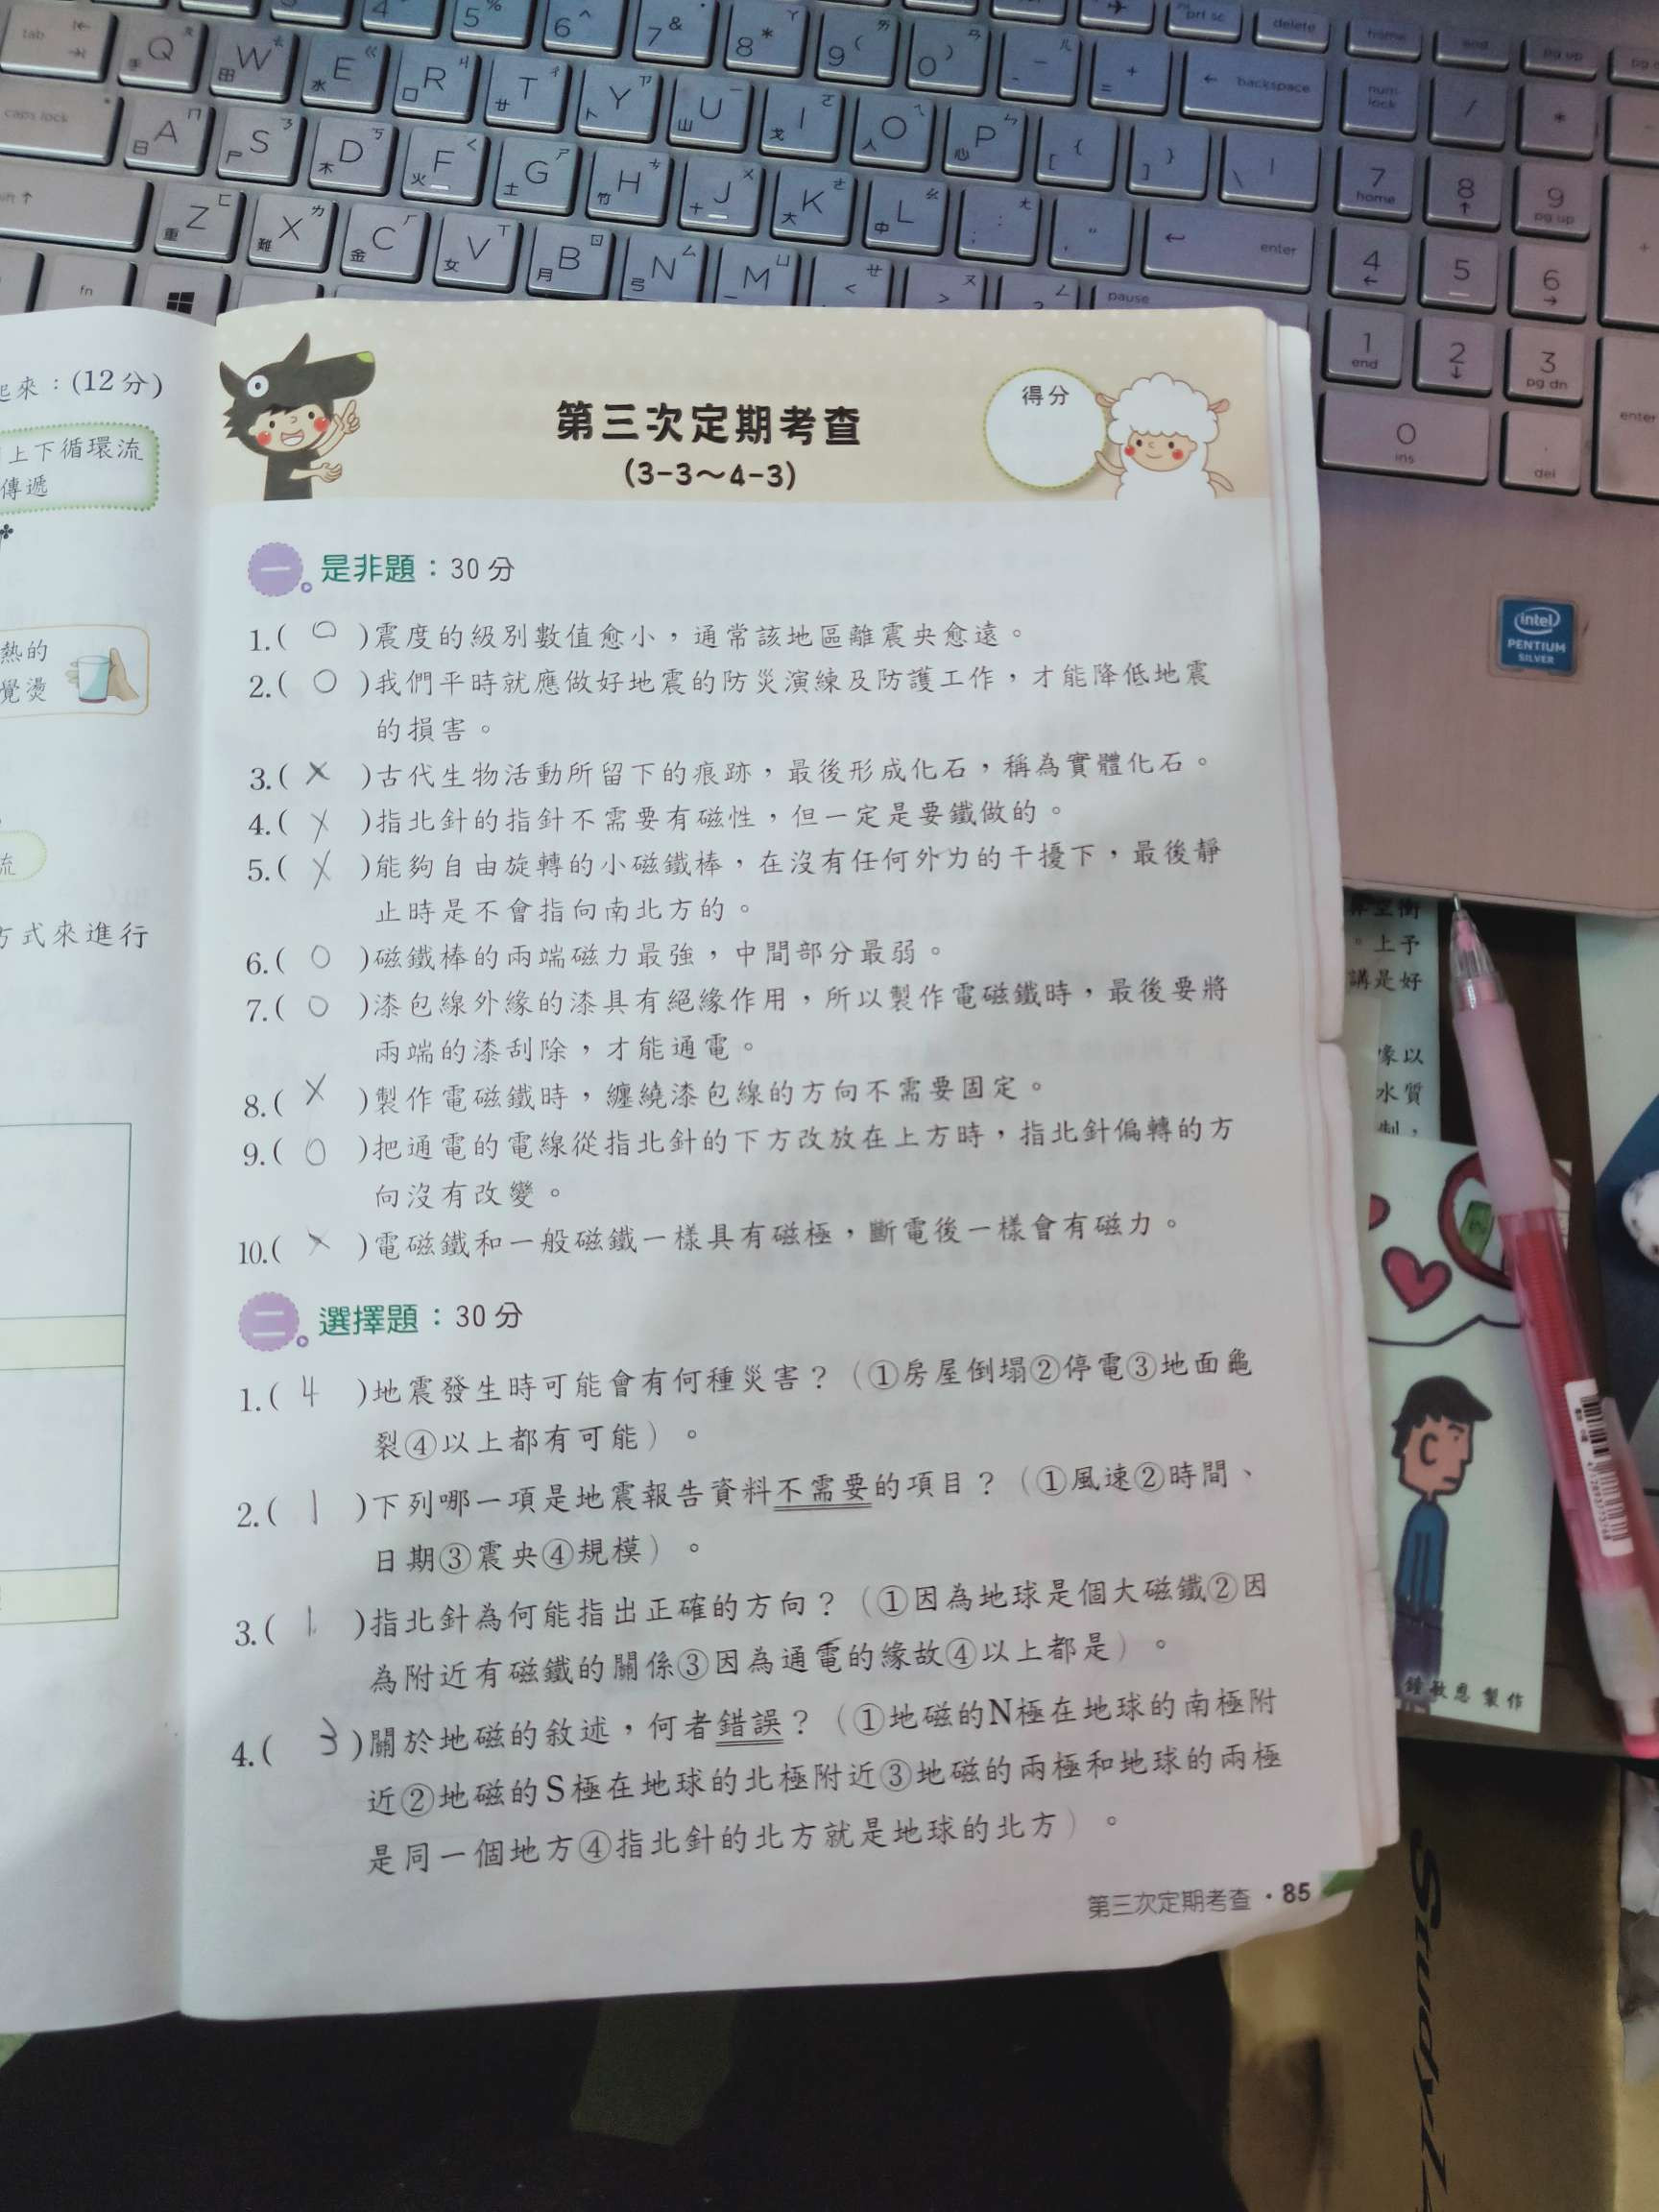 起來：(12分)
上下循環流
傳遞
熱的
覺燙
流
方式來進行
第三次定期考查
(3-3～4-3)
得分
一。是非題：30分
1.( O )震度的級別數值愈小，通常該地區離震央愈遠。
2.( O )我們平時就應做好地震的防災演練及防護工作，才能降低地震
的損害。
3.( X )古代生物活動所留下的痕跡，最後形成化石，稱為實體化石。
4.( X )指北針的指針不需要有磁性，但一定是要鐵做的。
5.( X )能夠自由旋轉的小磁鐵棒，在沒有任何外力的干擾下，最後靜
止時是不會指向南北方的。
6.( O )磁鐵棒的兩端磁力最強，中間部分最弱。
7.( O )漆包線外緣的漆具有絕緣作用，所以製作電磁鐵時，最後要將
兩端的漆刮除，才能通電。
8.( X )製作電磁鐵時，纏繞漆包線的方向不需要固定。
9.( O )把通電的電線從指北針的下方改放在上方時，指北針偏轉的方
向沒有改變。
10.( X )電磁鐵和一般磁鐵一樣具有磁極，斷電後一樣會有磁力。
二。選擇題：30分
1.( 4 )地震發生時可能會有何種災害？（①房屋倒塌②停電③地面龜
裂④以上都有可能）。
2.( 1 )下列哪一項是地震報告資料不需要的項目？（①風速②時間、
日期③震央④規模）。
3.( 1 )指北針為何能指出正確的方向？（①因為地球是個大磁鐵②因
為附近有磁鐵的關係③因為通電的緣故④以上都是）。
4.( 3 )關於地磁的敘述，何者錯誤？（①地磁的N極在地球的南極附
近②地磁的S極在地球的北極附近③地磁的兩極和地球的兩極
是同一個地方④指北針的北方就是地球的北方）。
第三次定期考查・85
intel
PENTIUM
SILVER
。上予
講是好
像以
水質
製作
tab Q W E R T Y U I O P
caps lock A S D F G H J K L enter
Z X C V B N M
fn pause
prt sc delete home end pg up
backspace num lock / *
7 home 8 9 pg up
4 5 6
1 end 2 3 pg dn
0 ins del enter